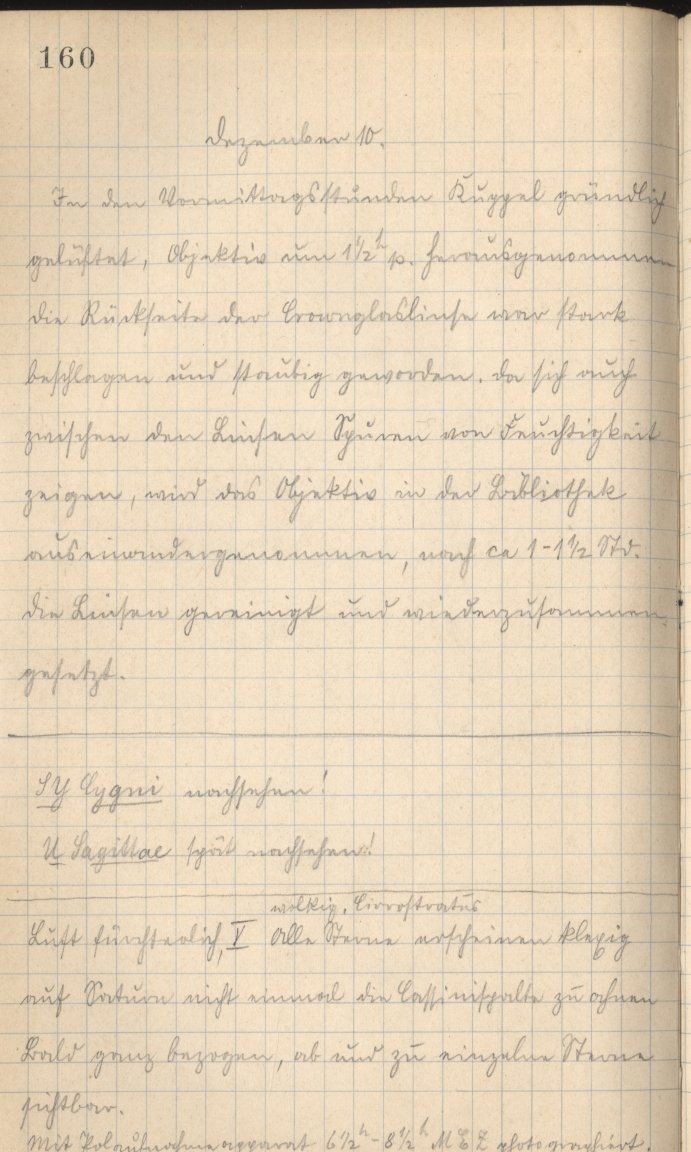 160
Dezember 10.
In den Vormittagsstunden Kuppel gründlich
gelüftet, Objektiv um 1½ h p. herausgenommen
die Rückseite der Crownglaslinse war stark
beschlagen und staubig geworden. Da sich auch
zwischen den Linsen Spuren von Feuchtigkeit
zeigen, wird das Objektiv in der Bibliothek
auseinandergenommen, nach ca 1-1½ Std.
die Linsen gereinigt und wiederzusammen-
gesetzt.
SY Cygni nachsehen!
U Sagittae spät nachsehen!
wolkig, Cirrostratus
Luft fürchterlich, V Alle Sterne erscheinen klexig
auf Saturn nicht einmal die Cassinispalte zu ahnen
Bald ganz bezogen, ab und zu einzelne Sterne
sichtbar.
Mit Polaufnahmeapparat 6½ h - 8½ h M E Z photographiert.